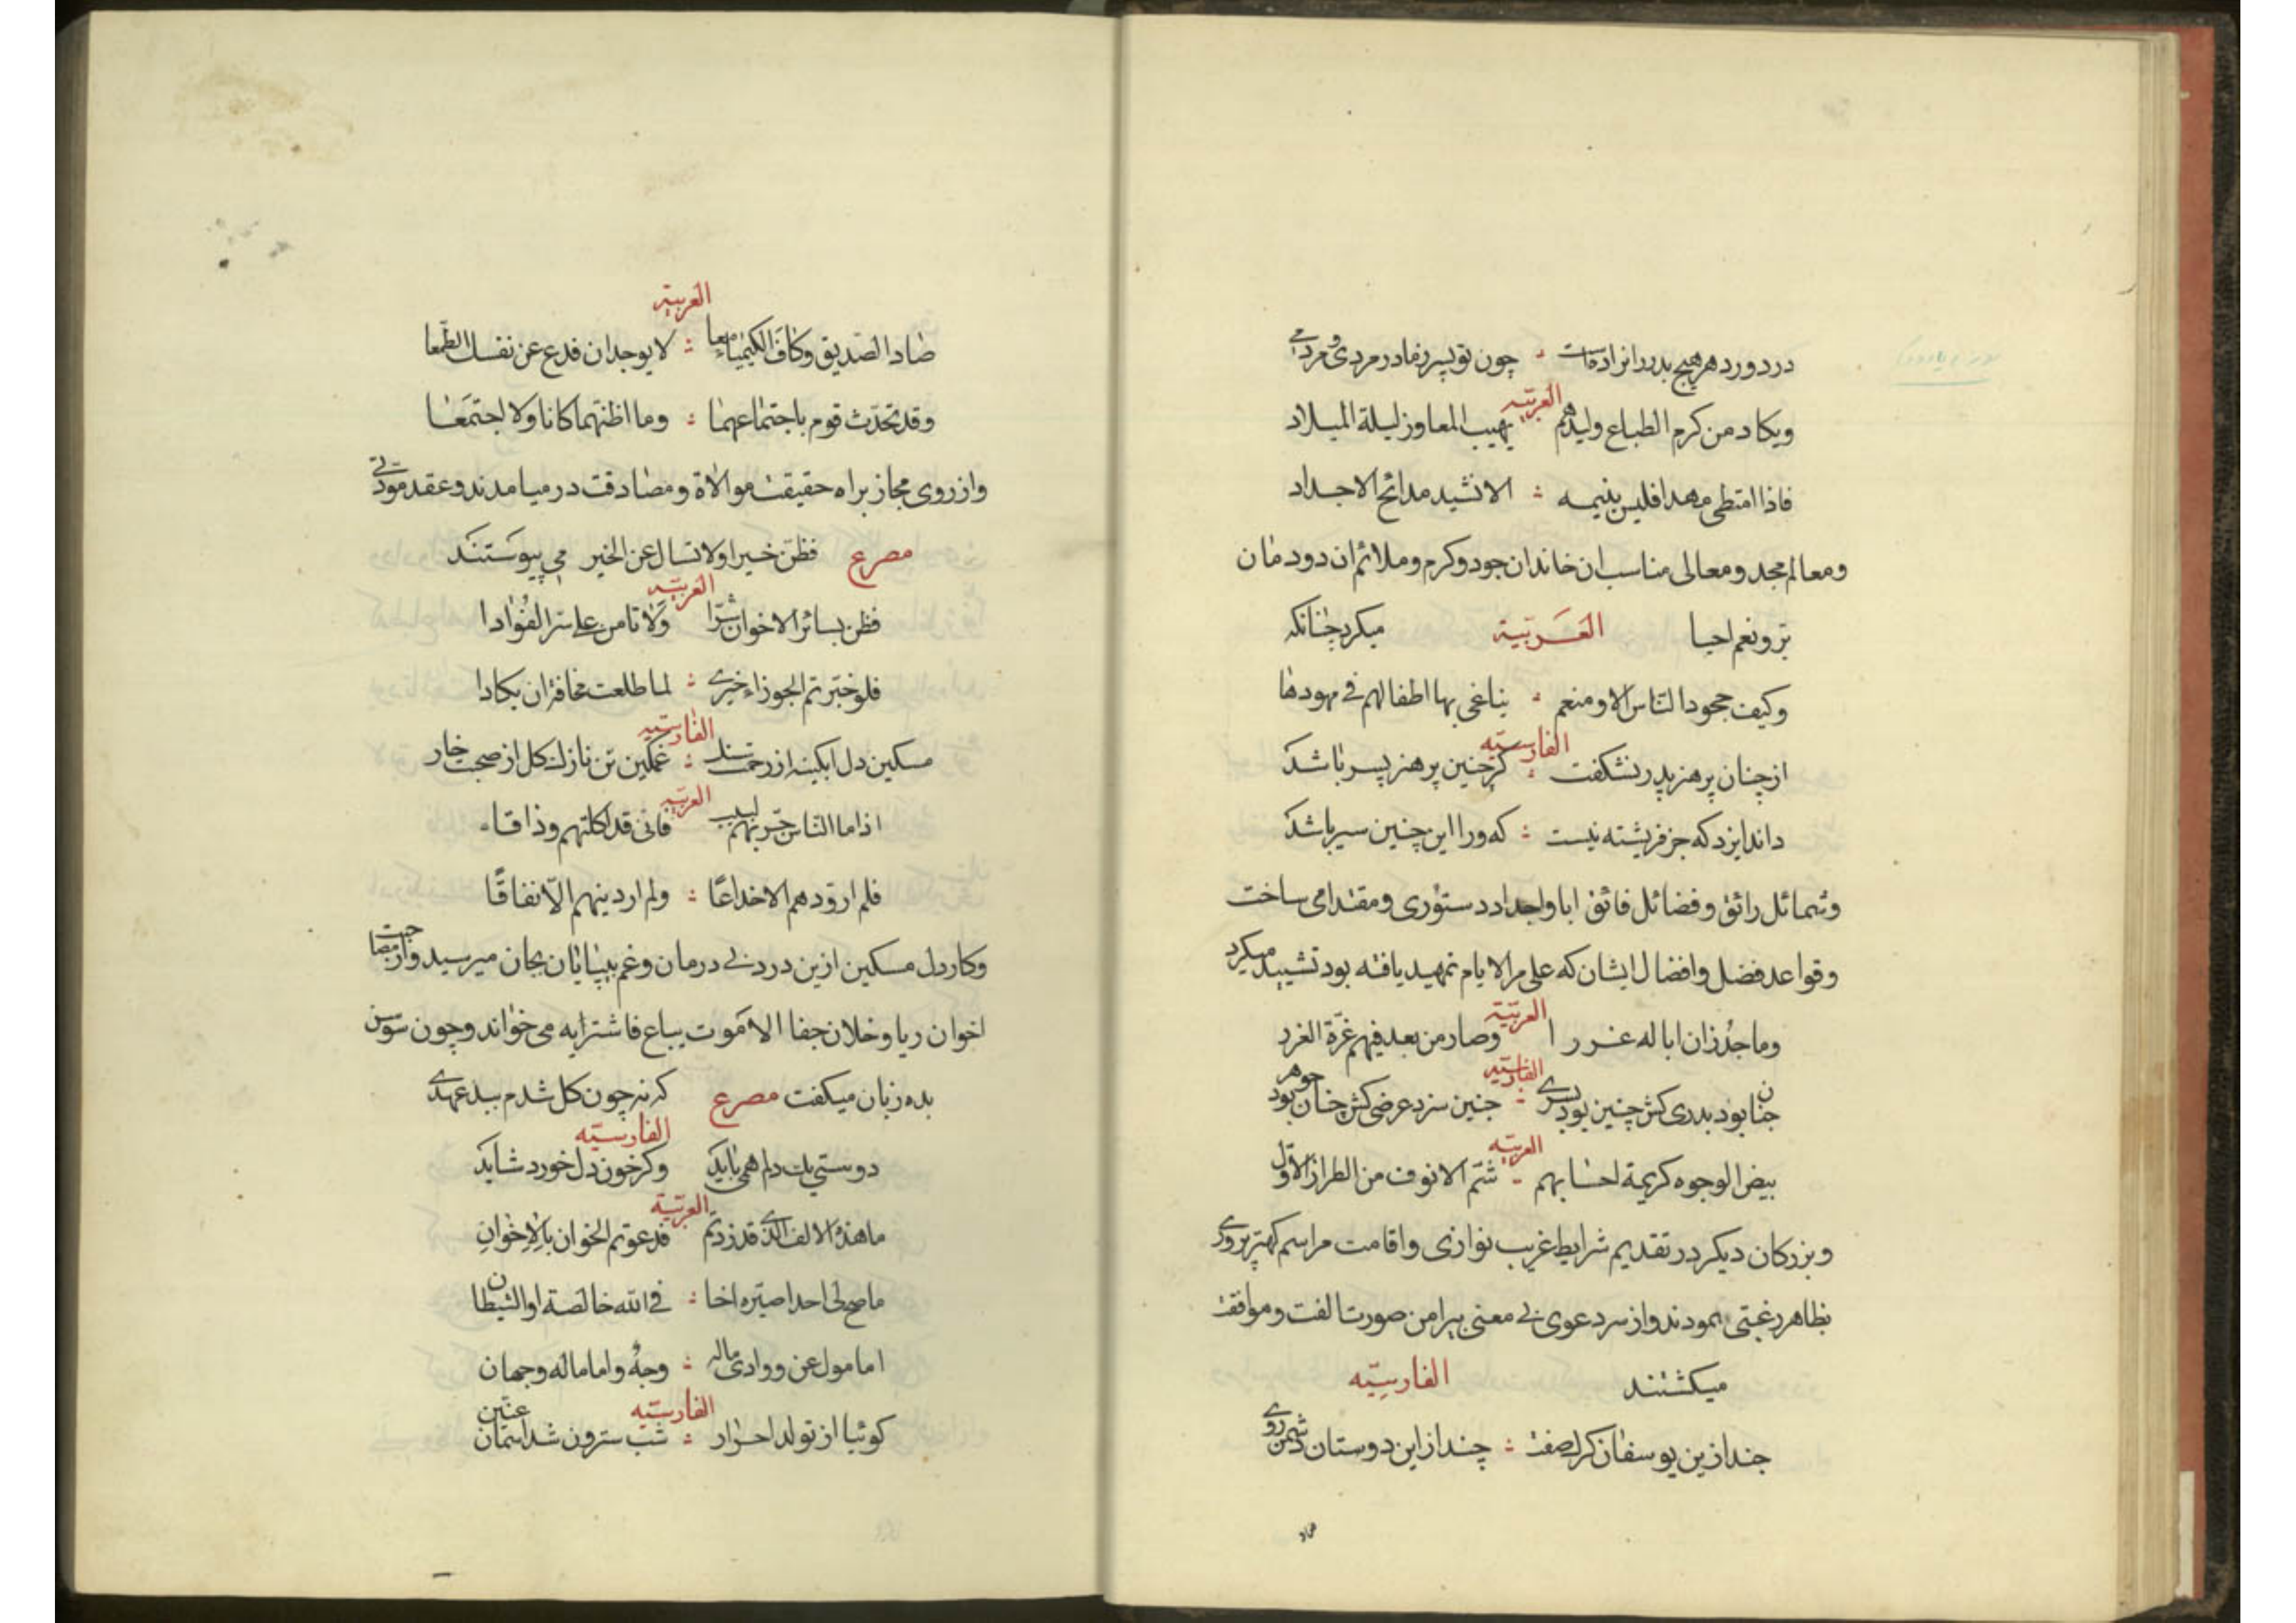 در دور دهر هیچ پدر را نزاده است ؞ چون تو پسر ز مادر مردی و مردمی
العربیّه
ویکاد من کرم الطباع ولیدهم ؞ یهب المعاوز لیلة المیلاد
فاذا امتطی مهدا فلیس ینیمه ؞ الا نشید مدائح الاجداد
ومعالم مجد ومعالی مناسب ان خاندان جود وکرم وملائم ان دودمان
بر ونعم احیا میکرد چنانکه العَربیّة
وکیف جحود الناس الا ومنعم ؞ یناغی بها اطفالهم فی مهودها
الفارسیّه
از چنان پر هنر پدر نشکفت ؞ کر چنین پر هنر پسر باشد
داند ایزد که جز فریشته نیست ؞ که ورا این چنین سیر باشد
وشمائل رائق وفضائل فائق ابا واجداد دستوری ومقتدامی ساخت
وقواعد فضل وافضال ایشان که علی مر الایام تمهید یافته بود تشیید میکرد
العربیّة
وما جد زان ابا له غررا وصار من بعد فیهم غرّة الغرر
الفارسیّه
چنان بود پدری کش چنین بود پسری ؞ چنین سزد عرضی کش چنان بود جوهر
العربیّه
بیض الوجوه کریمة احسابهم ؞ شمّ الانوف من الطراز الاوّل
وبزرکان دیکر در تقدیم شرایط غریب نوازی واقامت مراسم کهتر پروری
بظاهر رغبتی نمودند واز سر دعوی بی معنی پیرامن صورت الفت وموافقت
میکشتند الفارسیّه
چند ازین یوسفان کرک صفت ؞ چند از این دوستان دشمن روی
العربیّة
صاد الصّدیق وکاف الکیمیاء معا ؞ لا یوجدان فدع عن نفسک الطّمعا
وقد تحدّث قوم باجتماعهما ؞ وما اظنّهما کانا ولا اجتمعا
واز روی مجاز براه حقیقت موالاة ومصادقت درمیامدند وعقد مودّتی
مصرع فظنّ خیرا ولا تسال عن الخیر می پیوستند
العربیّه
فظن بسائر الاخوان شرّا ولا تامن علی سرّ الفؤادا
فلو خبّرتم الجوزاء خبری ؞ لما طلعت مخافة ان یکادا
الفارسیّه
مسکین دل ابکینه از زحمت سنک ؞ غمکین تن نازک کل از صحبت خار
العربیّه
اذا ما الناس جرّبهم لبیب فانی قد اکلتهم وذاقا
فلم ار ودهم الا خداعًا ؞ ولم ار دینهم الّا نفاقًا
وکار دل مسکین ازین درد بی درمان وغم بیپایان بجان میرسید واز مصاحبت
اخوان ریا وخلان جفا الا موت یباع فاشتریه می خواند وچون سوسن
بده زبان میکفت مصرع که نه چون کل شدم ببد عهدی
الفارسیّه
دوستی یک دلم همی باید وکر خون دل خورد شاید
العربیّة
ما هذه الالف التی قد زدتم فدعوتم الخوان بالاخوان
ما صح لی احد اصیّره اخا ؞ فی الله خالصة او الشیطان
اما مول عن ودادی ماله ؞ وجه واما من له وجهان
الفارسیّه
کوئیا از تولد احرار ؞ شب سترون شد اسمان عنین